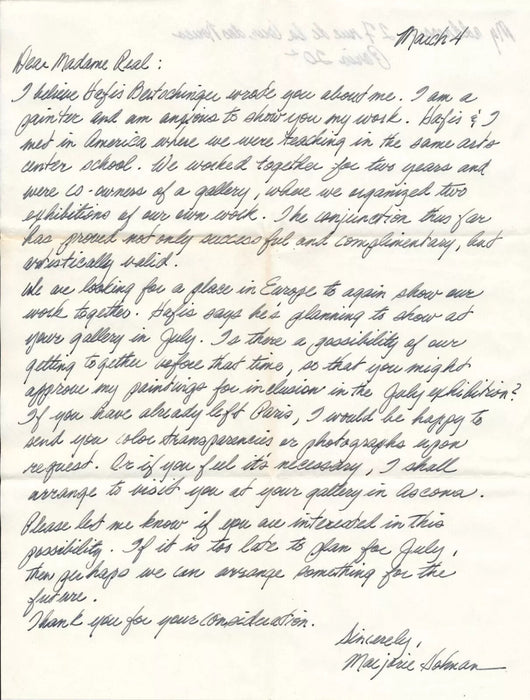 March 4
Dear Madame Real:
I believe Hafis Bertschinger wrote you about me. I am a
painter and am anxious to show you my work. Hafis & I
met in America where we were teaching in the same arts
center school. We worked together for two years and
were co-owners of a gallery, where we organized two
exhibitions of our own work. The conjunction thus far
has proved not only successful and complimentary, but
artistically valid.
We are looking for a place in Europe to again show our
work together. Hafis says he's planning to show at
your gallery in July. Is there a possibility of our
getting together before that time, so that you might
approve my paintings for inclusion in the July exhibition?
If you have already left Paris, I would be happy to
send you color transparencies or photographs upon
request. Or if you feel it's necessary, I shall
arrange to visit you at your gallery in Ascona.
Please let me know if you are interested in this
possibility. If it is too late to plan for July,
then perhaps we can arrange something for the
future.
Thank you for your consideration.
Sincerely,
Marjorie